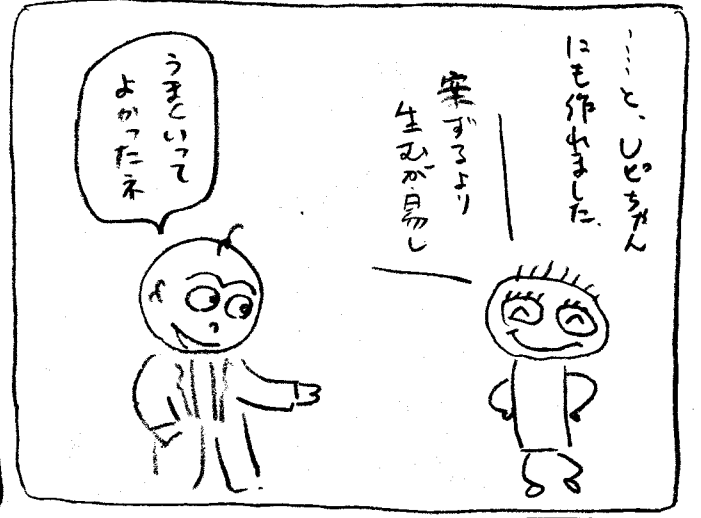 ……と、レピちゃん
にも作れました。
案ずるより
生むが易し
うまくいって
よかったネ